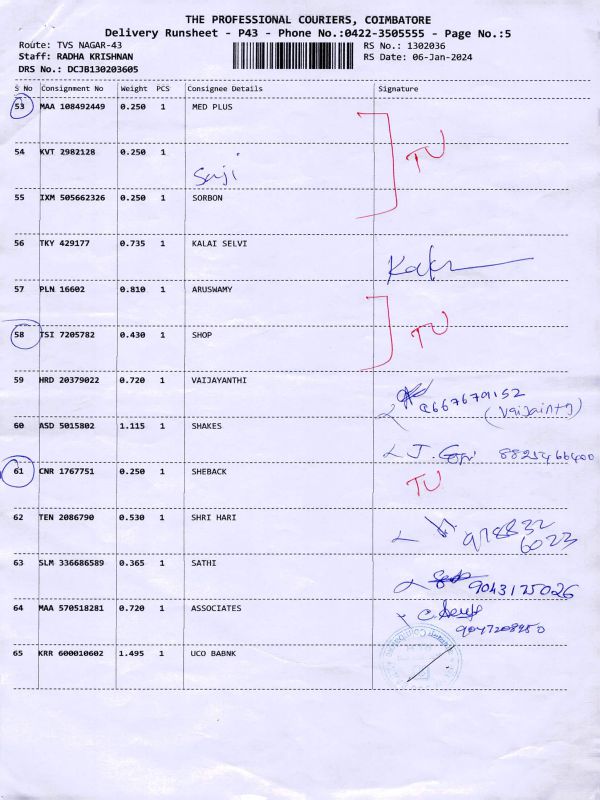 THE PROFESSIONAL COURIERS, COIMBATORE
Delivery Runsheet - P43 - Phone No.:0422-3505555 - Page No.:5
Route: TVS NAGAR-43
RS No.: 1302036
Staff: RADHA KRISHNAN
RS Date: 06-Jan-2024
DRS No.: DCJB130203605
S No Consignment No Weight PCS Consignee Details Signature
53 MAA 108492449 0.250 1 MED PLUS
TU
54 KVT 2982128 0.250 1
Saji
55 IXM 505662326 0.250 1 SORBON
56 TKY 429177 0.735 1 KALAI SELVI
57 PLN 16602 0.810 1 ARUSWAMY
58 TSI 7205782 0.430 1 SHOP
TU
59 HRD 20379022 0.720 1 VAIJAYANTHI
60 ASD 5015802 1.115 1 SHAKES
J. Gopi 8825466400
61 CNR 1767751 0.250 1 SHEBACK
TU
62 TEN 2086790 0.530 1 SHRI HARI
978832
6023
63 SLM 336686589 0.365 1 SATHI
9043125026
64 MAA 570518281 0.720 1 ASSOCIATES
9047208950
65 KRR 600010602 1.495 1 UCO BABNK